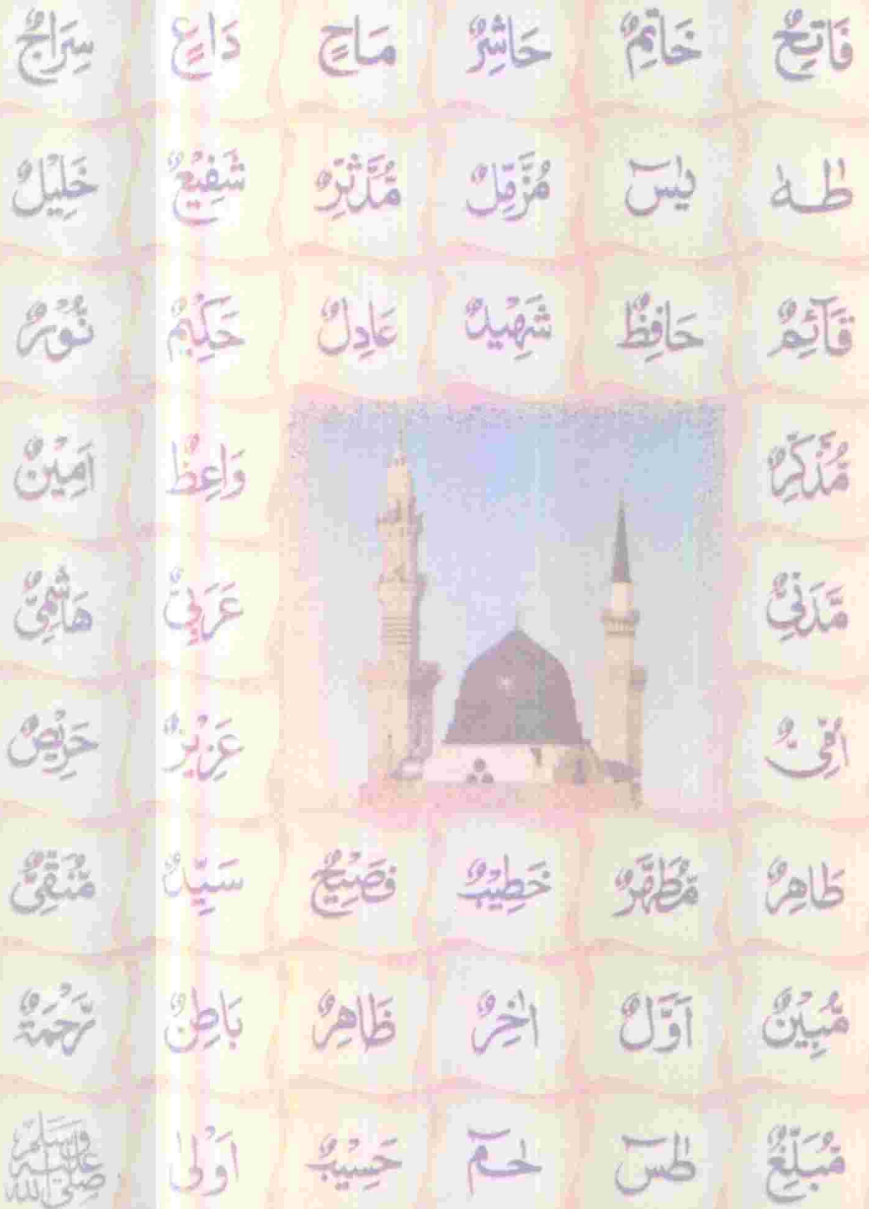 فَاتِحٌ خَاتِمٌ حَاشِرٌ مَاحٍ دَاعٍ سِرَاجٌ
طٰهٰ یٰسٓ مُزَّمِّلٌ مُّدَّثِّرٌ شَفِیْعٌ خَلِیْلٌ
قَآئِمٌ حَافِظٌ شَهِیْدٌ عَادِلٌ حَكِیْمٌ نُّوْرٌ
مُّذَكِّرٌ وَاعِظٌ اَمِیْنٌ
مَّدَنِیٌّ عَرَبِیٌّ هَاشِمِیٌّ
اُمِّیٌّ عَزِیْزٌ حَرِیْصٌ
طَاهِرٌ مُّطَهَّرٌ خَطِیْبٌ فَصِیْحٌ سَیِّدٌ مُّنَقِّیٌّ
مُّبِیْنٌ اَوَّلٌ اٰخِرٌ ظَاهِرٌ بَاطِنٌ رَّحْمَةٌ
مُبَلِّغٌ طٰسٓ حٰمٓ حَسِیْبٌ اَوْلٰی صَلَّی اللّٰهُ عَلَیْهِ وَسَلَّمَ